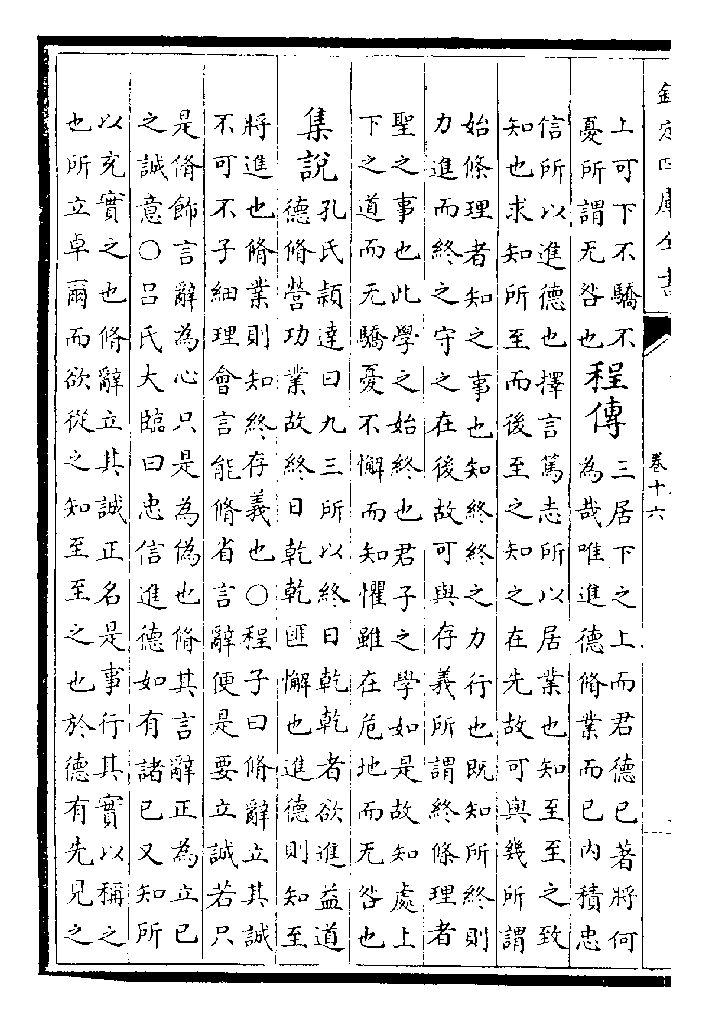 欽定四庫全書
卷十六
上可下不驕不
憂所謂无咎也
程傳
三居下之上而君德已著將何
為哉唯進德脩業而已内積忠
信所以進德也擇言篤志所以居業也知至至之致
知也求知所至而後至之知之在先故可與幾所謂
始條理者知之事也知終終之力行也既知所終則
力進而終之守之在後故可與存義所謂終條理者
聖之事也此學之始終也君子之學如是故知處上
下之道而无驕憂不懈而知懼雖在危地而无咎也
集說
孔氏穎達曰九三所以終日乾乾者欲進益道
德脩營功業故終日乾乾匪懈也進德則知至
將進也脩業則知終存義也○程子曰脩辭立其誠
不可不子細理會言能脩省言辭便是要立誠若只
是脩飾言辭為心只是為偽也脩其言辭正為立已
之誠意○吕氏大臨曰忠信進德如有諸已又知所
以充實之也脩辭立其誠正名是事行其實以稱之
也所立卓爾而欲從之知至至之也於德有先見之